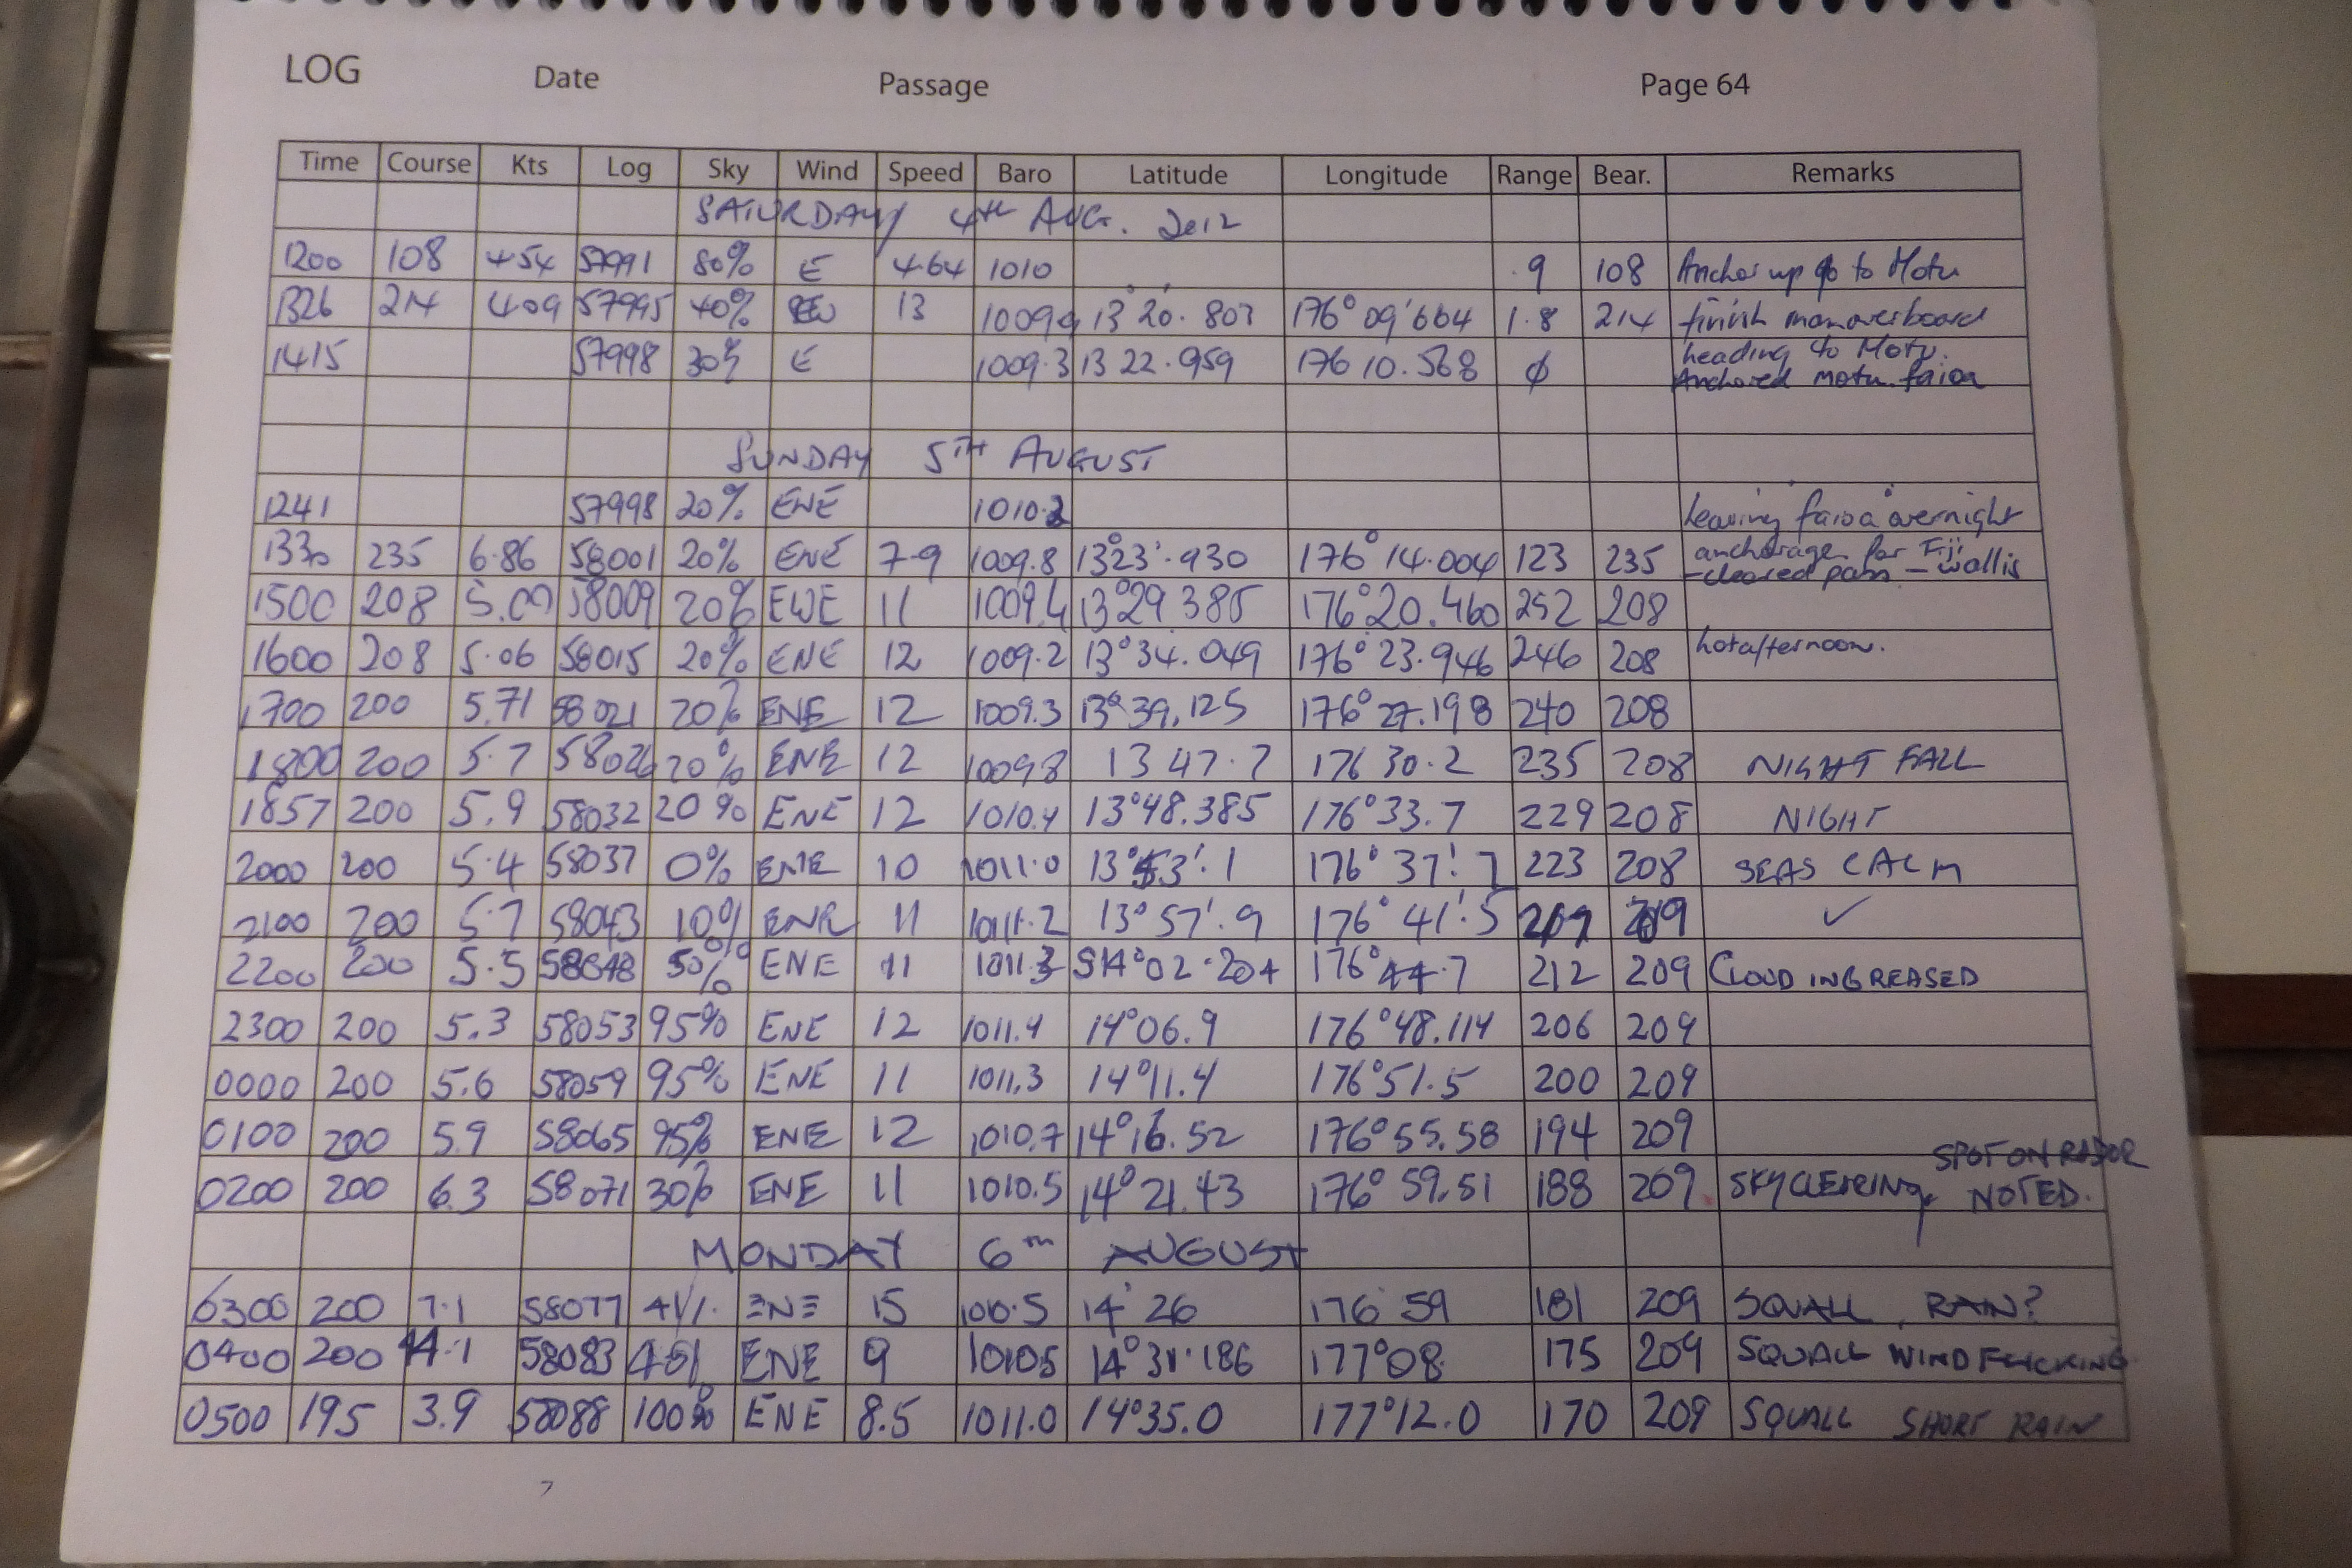 LOG Date Passage Page 64
Time Course Kts Log Sky Wind Speed Baro Latitude Longitude Range Bear. Remarks
SATURDAY 4TH AUG. 2012
1200 108 4.54 57991 80% E 4.64 1010 .9 108 Anchor up go to Motu
1326 214 4.09 57995 40% 13 1009.9 13°20'.807 176°09'664 1.8 214 finish manoverboard
heading to Motu.
1415 57998 30% E 1009.3 13 22.959 176 10.568 ϕ Anchored motu faioa
SUNDAY 5TH AUGUST
1241 57998 20% ENE 1010.2 leaving faioa overnight
anchorage for Fiji
1330 235 6.86 58001 20% ENE 7-9 1009.8 13°23'.930 176°14.004 123 235 -cleared pass - Wallis
1500 208 58009 20% ENE 11 1009.4 13°29 385 176°20.460 252 208
1600 208 5.06 58015 20% ENE 12 1009.2 13°34.049 176°23.946 246 208 hot afternoon.
1700 200 5.71 58021 20% ENE 12 1009.3 13°39.125 176°27.198 240 208
1800 200 5.7 58026 20% ENE 12 1009.8 13 47.7 176 30.2 235 208 NIGHT FALL
1857 200 5.9 58032 20% ENE 12 1010.4 13°48.385 176°33.7 229 208 NIGHT
2000 200 5.4 58037 0% ENE 10 1011.0 13°53'.1 176°37'.7 223 208 SEAS CALM
2100 200 5.7 58043 10% ENE 11 1011.2 13°57'.9 176°41'.5 209 ✓
2200 200 5.5 58048 50% ENE 11 1011.3 S14°02.204 176°44.7 212 209 CLOUD INCREASED
2300 200 5.3 58053 95% ENE 12 1011.4 14°06.9 176°48.114 206 209
0000 200 5.6 58059 95% ENE 11 1011.3 14°11.4 176°51.5 200 209
0100 200 5.9 58065 95% ENE 12 1010.7 14°16.52 176°55.58 194 209
SPOT ON RADOR
0200 200 6.3 58071 30% ENE 11 1010.5 14°21.43 176°59.51 188 209 SKY CLEARING, NOTED.
MONDAY 6TH AUGUST
0300 200 7.1 58077 ENE 15 1010.5 14°26 176 59 181 209 SQUALL, RAIN?
0400 200 58083 ENE 9 1010.5 14°31.186 177°08. 175 209 SQUALL WIND FLICKING
0500 195 3.9 58088 100% ENE 8.5 1011.0 14°35.0 177°12.0 170 209 SQUALL SHORT RAIN